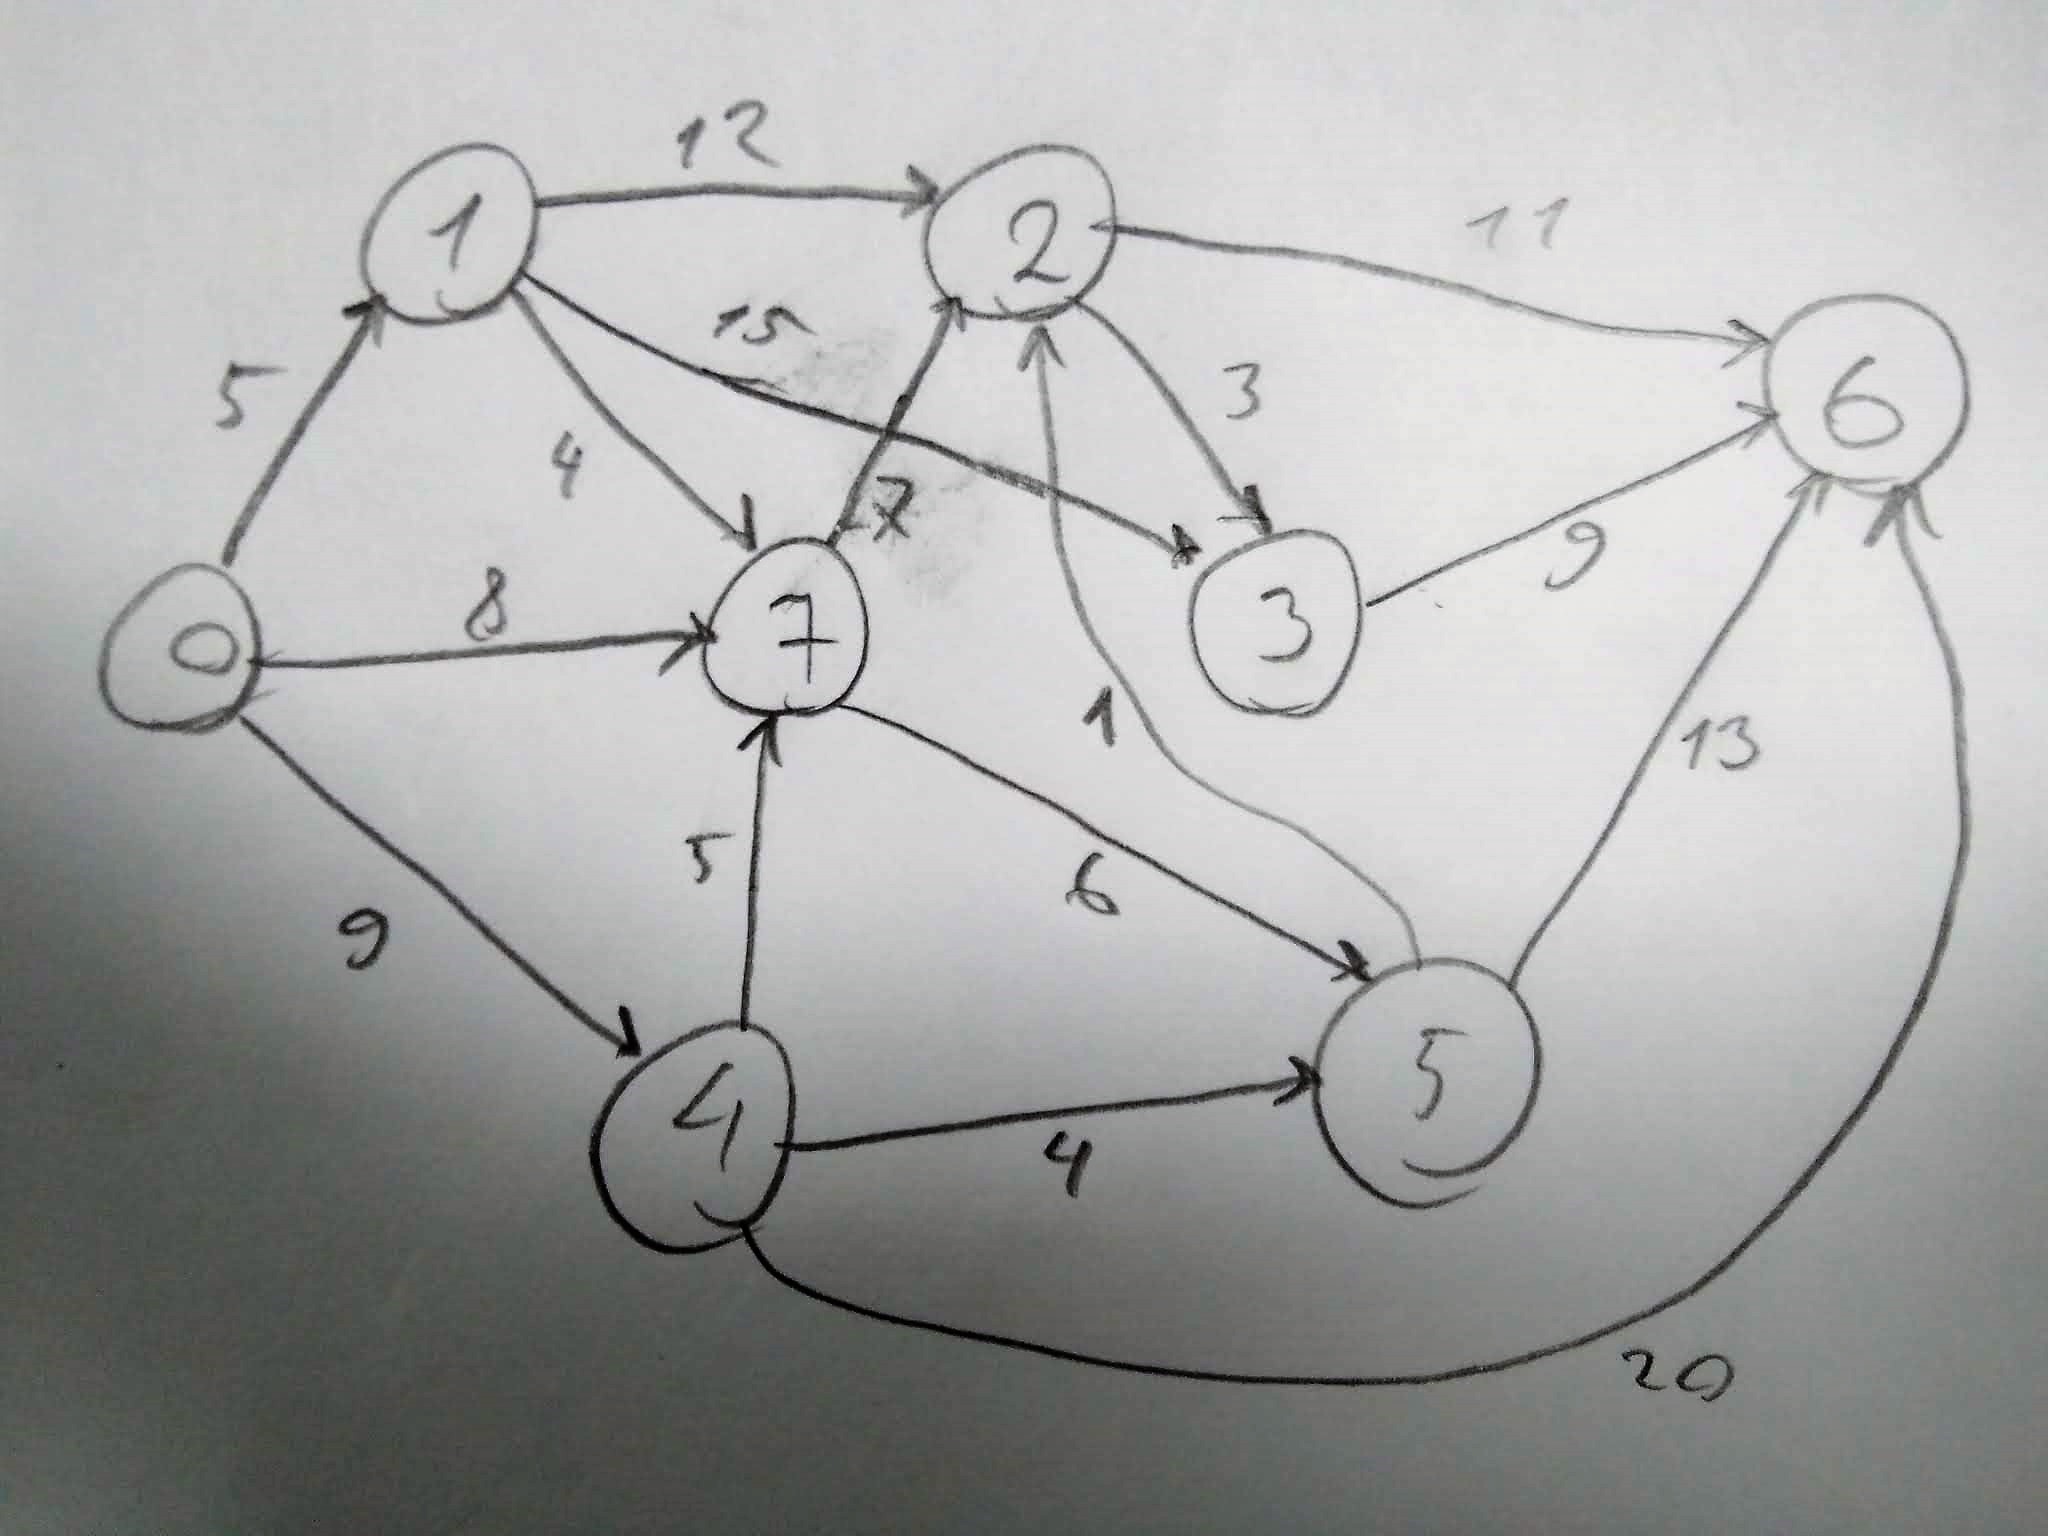 12
1
2
11
15
5
3
6
4
7
8
9
0
7
3
1
13
5
6
9
5
4
4
20